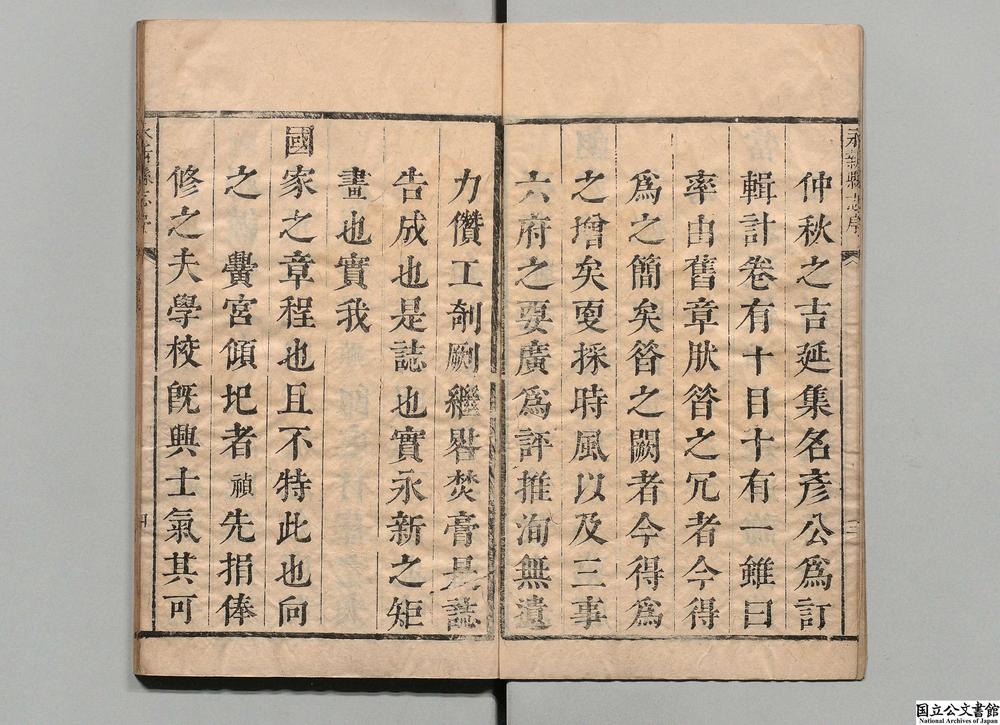 永新縣志序
仲秋之吉延集名彥公爲訂
輯計卷有十日十有一雖曰
率由舊章肰昝之冗者今得
爲之簡矣昝之闕者今得爲
之增矣更採時風以及三事
六府之要廣爲評推洵無遺
力儹工剞劂繼晷焚膏是誌
告成也是誌也實永新之矩
畫也實我
國家之章程也且不特此也向
之黌宮傾圯者禎先捐俸
修之夫學校旣興士氣其可
永新縣志序
四
国立公文書館
National Archives of Japan